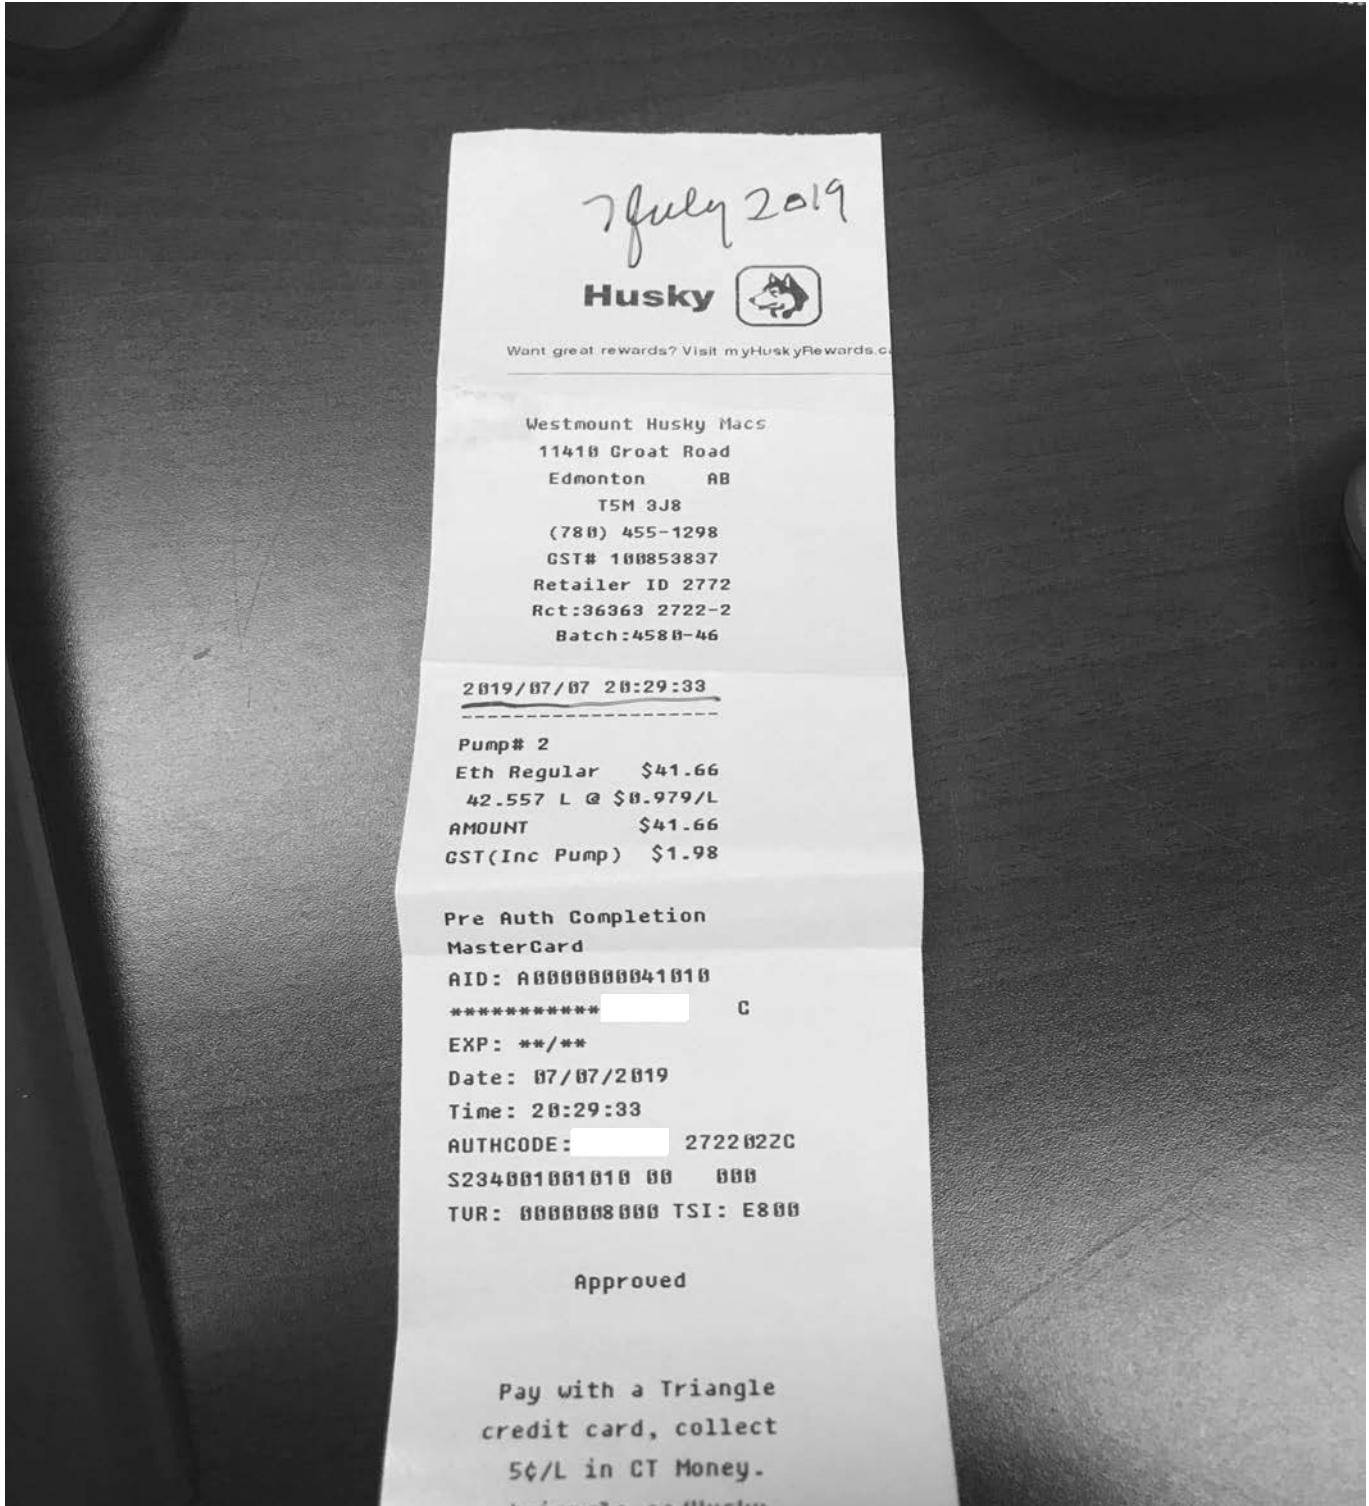 7 July 2019
Husky
Want great rewards? Visit myHuskyRewards.c
Westmount Husky Macs
11410 Groat Road
Edmonton AB
T5M 3J8
(780) 455-1298
GST# 100853837
Retailer ID 2772
Rct:36363 2722-2
Batch:4580-46
2019/07/07 20:29:33
--------------------
Pump# 2
Eth Regular $41.66
42.557 L @ $0.979/L
AMOUNT $41.66
GST(Inc Pump) $1.98
Pre Auth Completion
MasterCard
AID: A0000000041010
*********** C
EXP: **/**
Date: 07/07/2019
Time: 20:29:33
AUTHCODE: 2722022C
S234001001010 00 000
TVR: 0000008000 TSI: E800
Approved
Pay with a Triangle
credit card, collect
5¢/L in CT Money.